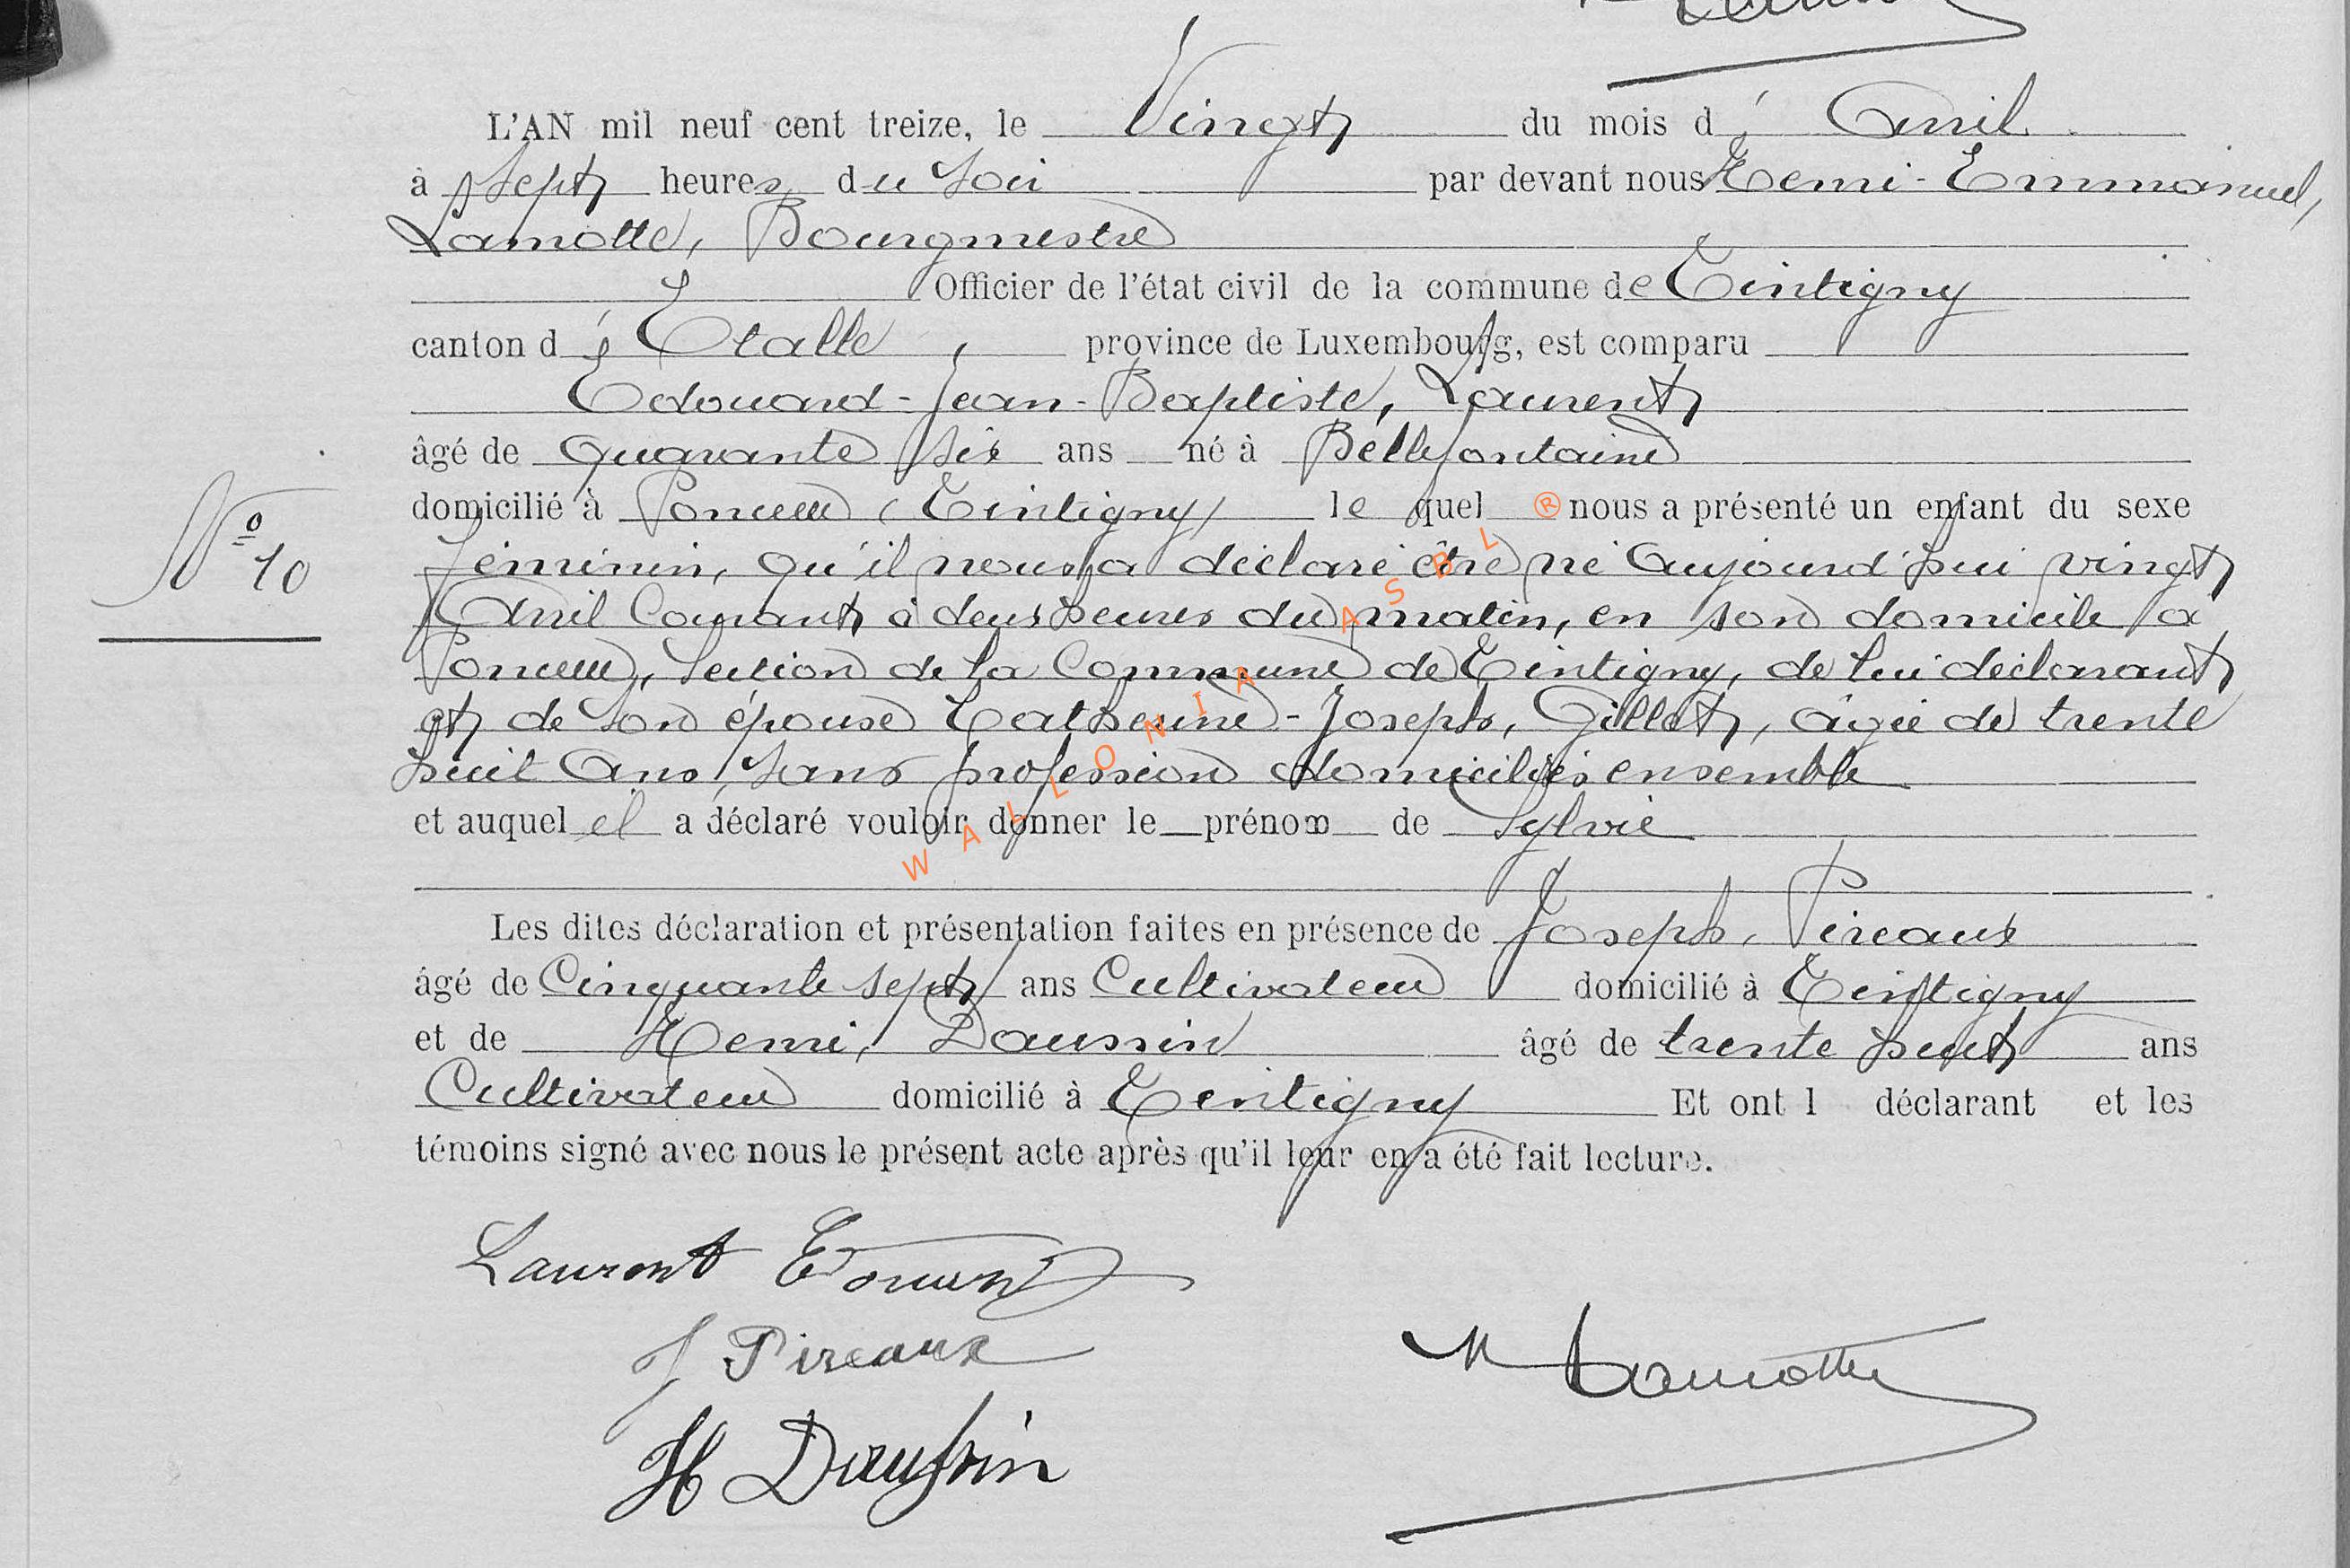 L'AN mil neuf cent treize, le Vingt du mois d'Avril
à sept heures du soir par devant nous Henri-Emmanuel,
Lamotte, Bourgmestre
Officier de l'état civil de la commune de Tintigny
canton d'Étalle, province de Luxembourg, est comparu
Edouard-Jean-Baptiste, Laurent
âgé de quarante six ans né à Bellefontaine
domicilié à Poncelle (Tintigny) le quel ® nous a présenté un enfant du sexe
N° 10
féminin, qu'il nous a déclaré être né aujourd'hui vingt
Avril Courant à deux heures du matin, en son domicile à
Poncelle, Section de la Commune de Tintigny, de lui déclarant
et de son épouse Catherine-Joseph, Gillet, âgée de trente
huit ans, sans profession domiciliés ensemble
et auquel il a déclaré vouloir donner le prénom de Sylvie
WALLONIA ASBL
Les dites déclaration et présentation faites en présence de Joseph, Pireaux
âgé de Cinquante sept ans Cultivateur domicilié à Tintigny
et de Henri, Daussin âgé de trente huit ans
Cultivateur domicilié à Tintigny Et ont l déclarant et les
témoins signé avec nous le présent acte après qu'il leur en a été fait lecture.
Laurent Edouard
J Pireaux
H Lamotte
H Daussin